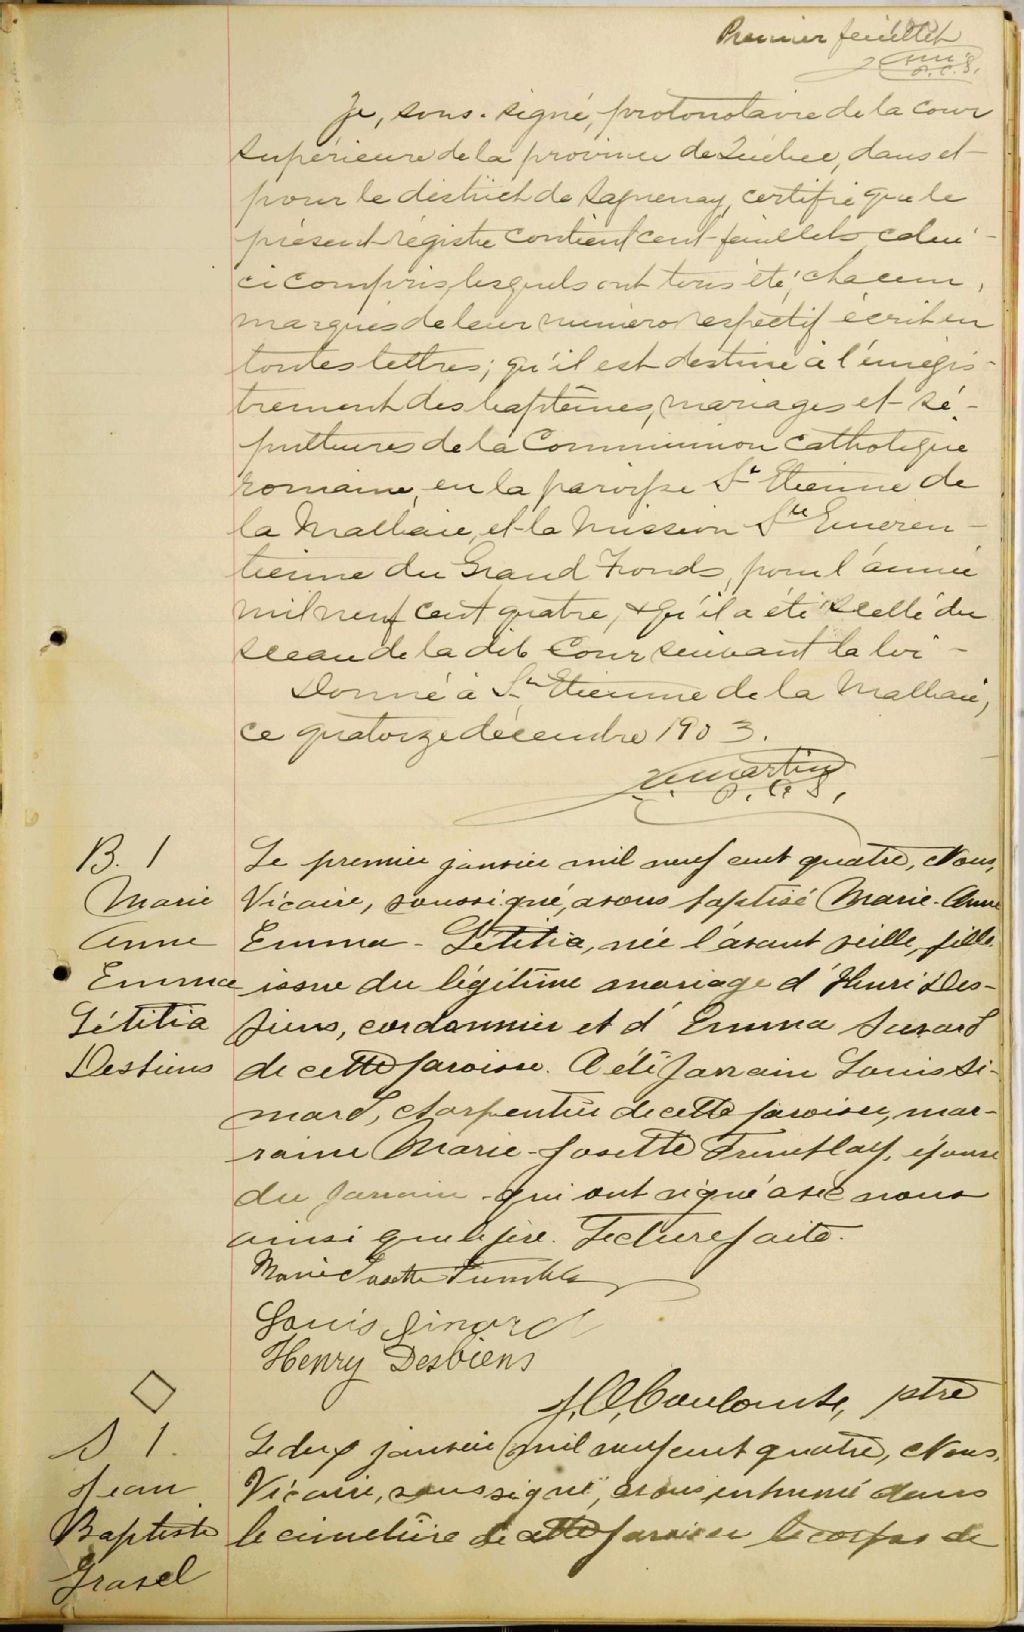 Premier feuillet
P.C.S.
Je, sous-signé, protonotaire de la cour
Supérieure de la province de Québec, dans et
pour le district de Saguenay, certifie que le
présent régistre contient cent feuillets celui-
ci compris, lesquels ont tous été, chacun,
marqués de leur numéro respectif écrit en
toutes lettres; qu'il est destiné à l'enrégis-
trement des baptêmes, mariages et sé-
pultures de la Communion catholique
romaine, en la paroisse St Etienne de
la Malbaie, et la Mission Ste Emeren-
tienne du Grand Fonds, pour l'année
mil neuf cent quatre, & qu'il a été scellé du
sceau de la dite Cour suivant la loi -
Donné à St Etienne de la Malbaie,
ce quatorze décembre 1903.
Martin
P.C.S.
B. 1
Marie
Anne
Emma
Létitia
Desbiens
Le premier janvier mil neuf cent quatre, Nous,
Vicaire, soussigné, avons baptisé Marie-Anne
Emma-Létitia, née l'avant veille, fille
issue du légitime mariage d'Henri Des-
biens, cordonnier et d'Emma Savard
de cette paroisse. A été parrain Louis Si-
mard, charpentier de cette paroisse, mar-
raine Marie-Josette Tremblay, épouse
du parrain qui ont signé avec nous
ainsi que le père. Lecture faite.
Marie Josette Tremblay
Louis Simard
Henry Desbiens
J.O. Coulombe, ptre
S 1.
Jean
Baptiste
Gravel
Le deux janvier mil neuf cent quatre, Nous,
Vicaire, soussigné, avons inhumé dans
le cimetière de cette paroisse le corps de